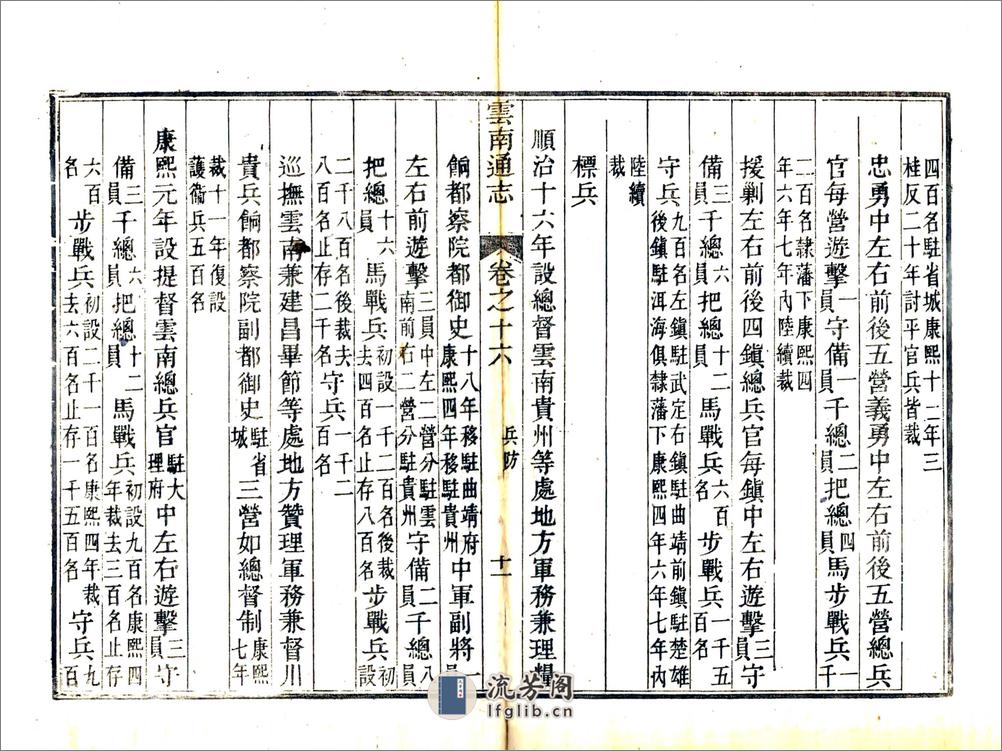 四百名駐省城康熙十二年三桂反二十年討平官兵皆裁
忠勇中左右前後五營義勇中左右前後五營總兵
官每營遊擊一員守備一員千總二員把總四員馬步戰兵一千
二百名隸藩下康熙四年六年七年內陸續裁
援剿左右前後四鎮總兵官每鎮中左右遊擊三員守
備三員千總六員把總十二員馬戰兵六百名步戰兵一千五百名
守兵九百名左鎮駐武定右鎮駐曲靖前鎮駐楚雄後鎮駐洱海俱隸藩下康熙四年六年七年內
陸續裁
標兵
順治十六年設總督雲南貴州等處地方軍務兼理糧
雲南通志 卷之十六 兵防 十一
餉都察院都御史十八年移駐曲靖府康熙四年移駐貴州中軍副將一員
左右前遊擊三員中左二營分駐雲南前右二營分駐貴州守備二員千總八員
把總十六員馬戰兵初設一千二百名後裁去四百名止存八百名步戰兵初設
二千八百名後裁去八百名止存二千名守兵一千二百名
巡撫雲南兼建昌畢節等處地方贊理軍務兼督川
貴兵餉都察院副都御史駐省城三營如總督制康熙七年
裁十一年復設護衛兵五百名
康熙元年設提督雲南總兵官駐大理府中左右遊擊三員守
備三員千總六員把總十二員馬戰兵初設九百名康熙四年裁去三百名止存
六百名步戰兵初設二千一百名康熙四年裁去六百名止存一千五百名守兵九百
流芳阁
lfglib.cn